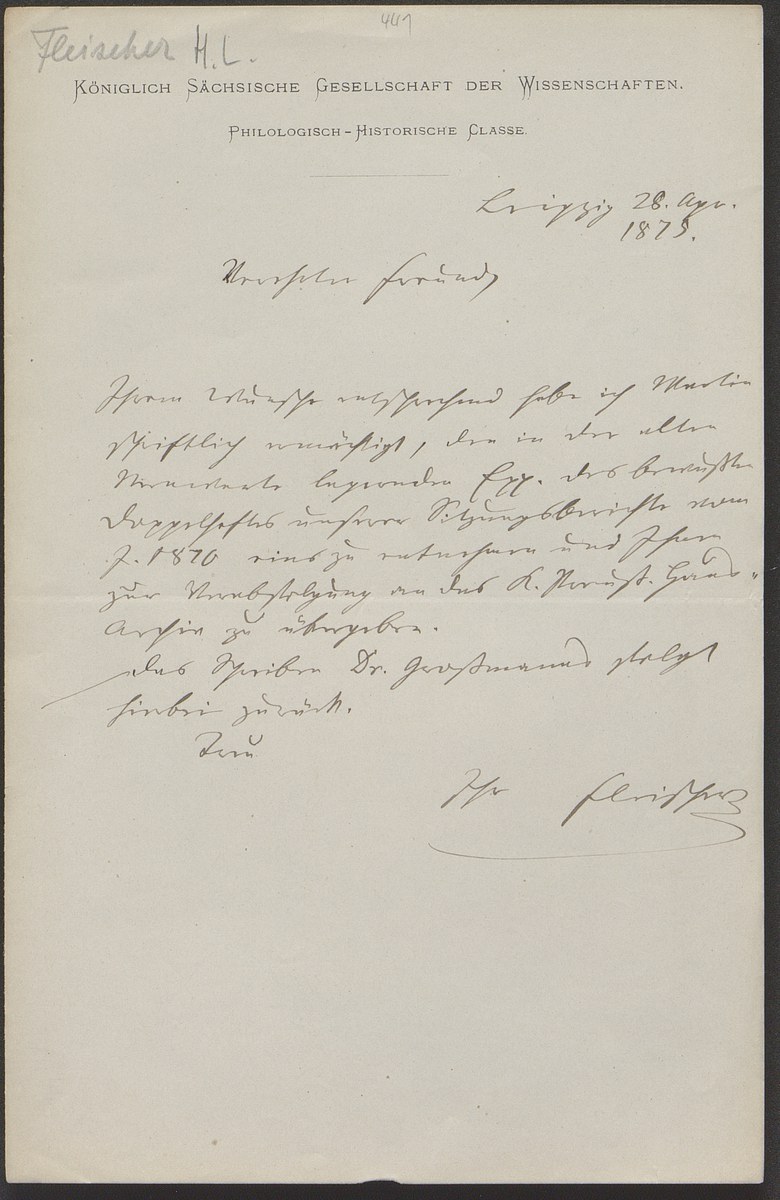 441
Fleischer H. L.
KÖNIGLICH SÄCHSISCHE GESELLSCHAFT DER WISSENSCHAFTEN.
PHILOLOGISCH-HISTORISCHE CLASSE.
Leipzig 28. Apr.
1875.
Verehrter Freund,
Ihrem Wunsche entsprechend habe ich
schriftlich ermächtigt, den in der alten
lagernden Exx. des bewußten
Doppelheftes unserer Sitzungsberichte vom
J. 1870 eins zu entnehmen und Ihnen
zur Verabfolgung an das K. Preuß. Haus-
Archiv zu übergeben.
Das Schreiben Dr. Großmanns folgt
hierbei zurück.
Treu
Ihr Fleischer